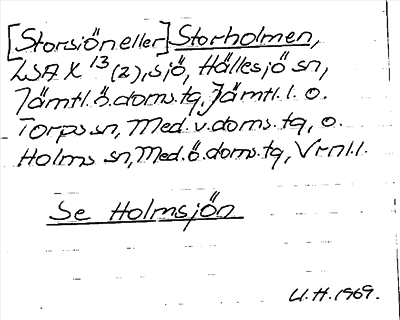 [Storsjön eller] Storholmen,
LSA X 13 (2), sjö, Hällesjö sn,
Jämtl. ö. doms. tg, Jämtl. l. o.
Torps sn, Med. v. doms. tg, o.
Holms sn, Med. ö. doms. tg, Vrnl. l.
Se Holmsjön
U.H. 1969.